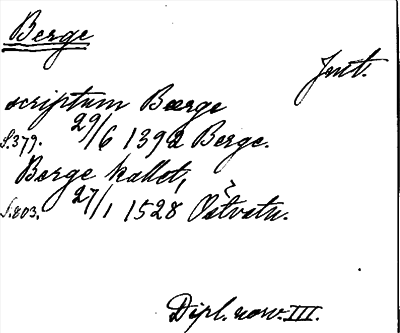 Berge
Jmt.
scriptum Bærge
S.379. 29/6 1392 Berge.
Berge kallet,
S.203. 27/1 1528
Dipl. norv. III.